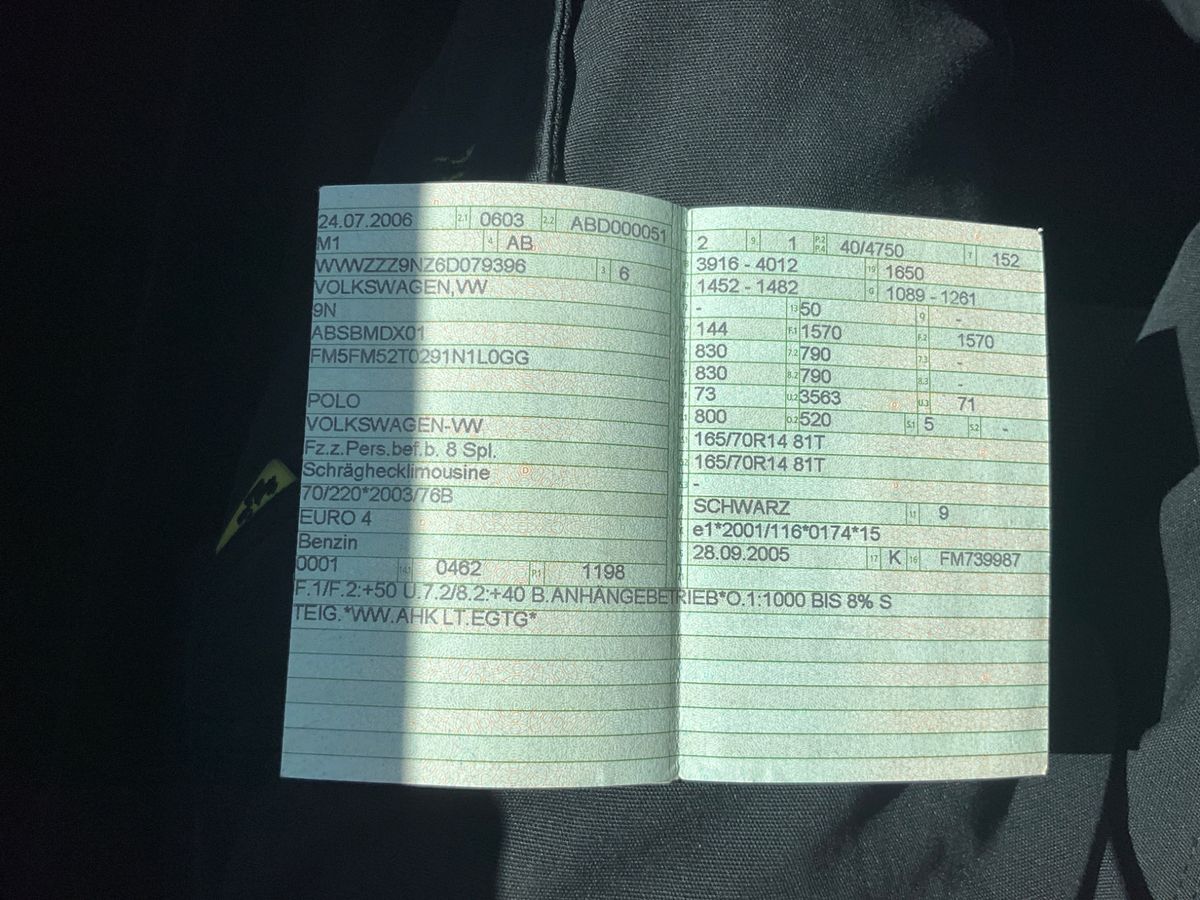 24.07.2006 2.1 0603 2.2 ABD000051
M1 4 AB
WVWZZZ9NZ6D079396 3 6
VOLKSWAGEN,VW
9N
ABSBMDX01
FM5FM52T0291N1L0GG
POLO
VOLKSWAGEN-VW
Fz.z.Pers.bef.b. 8 Spl.
Schräghecklimousine
70/220*2003/76B
EURO 4
Benzin
0001 14.1 0462 P.1 1198
2 9 1 P.2 P.4 40/4750 T 152
3916 - 4012 19 1650
1452 - 1482 G 1089 - 1261
- 13 50 Q -
144 F.1 1570 F.2 1570
830 7.2 790 7.3 -
830 8.2 790 8.3 -
73 U.2 3563 U.3 71
800 O.2 520 S.1 5 S.2 -
165/70R14 81T
165/70R14 81T
-
SCHWARZ 11 9
e1*2001/116*0174*15
28.09.2005 17 K 16 FM739987
F.1/F.2:+50 U.7.2/8.2:+40 B.ANHÄNGEBETRIEB*O.1:1000 BIS 8% S
TEIG.*WW.AHK LT.EGTG*